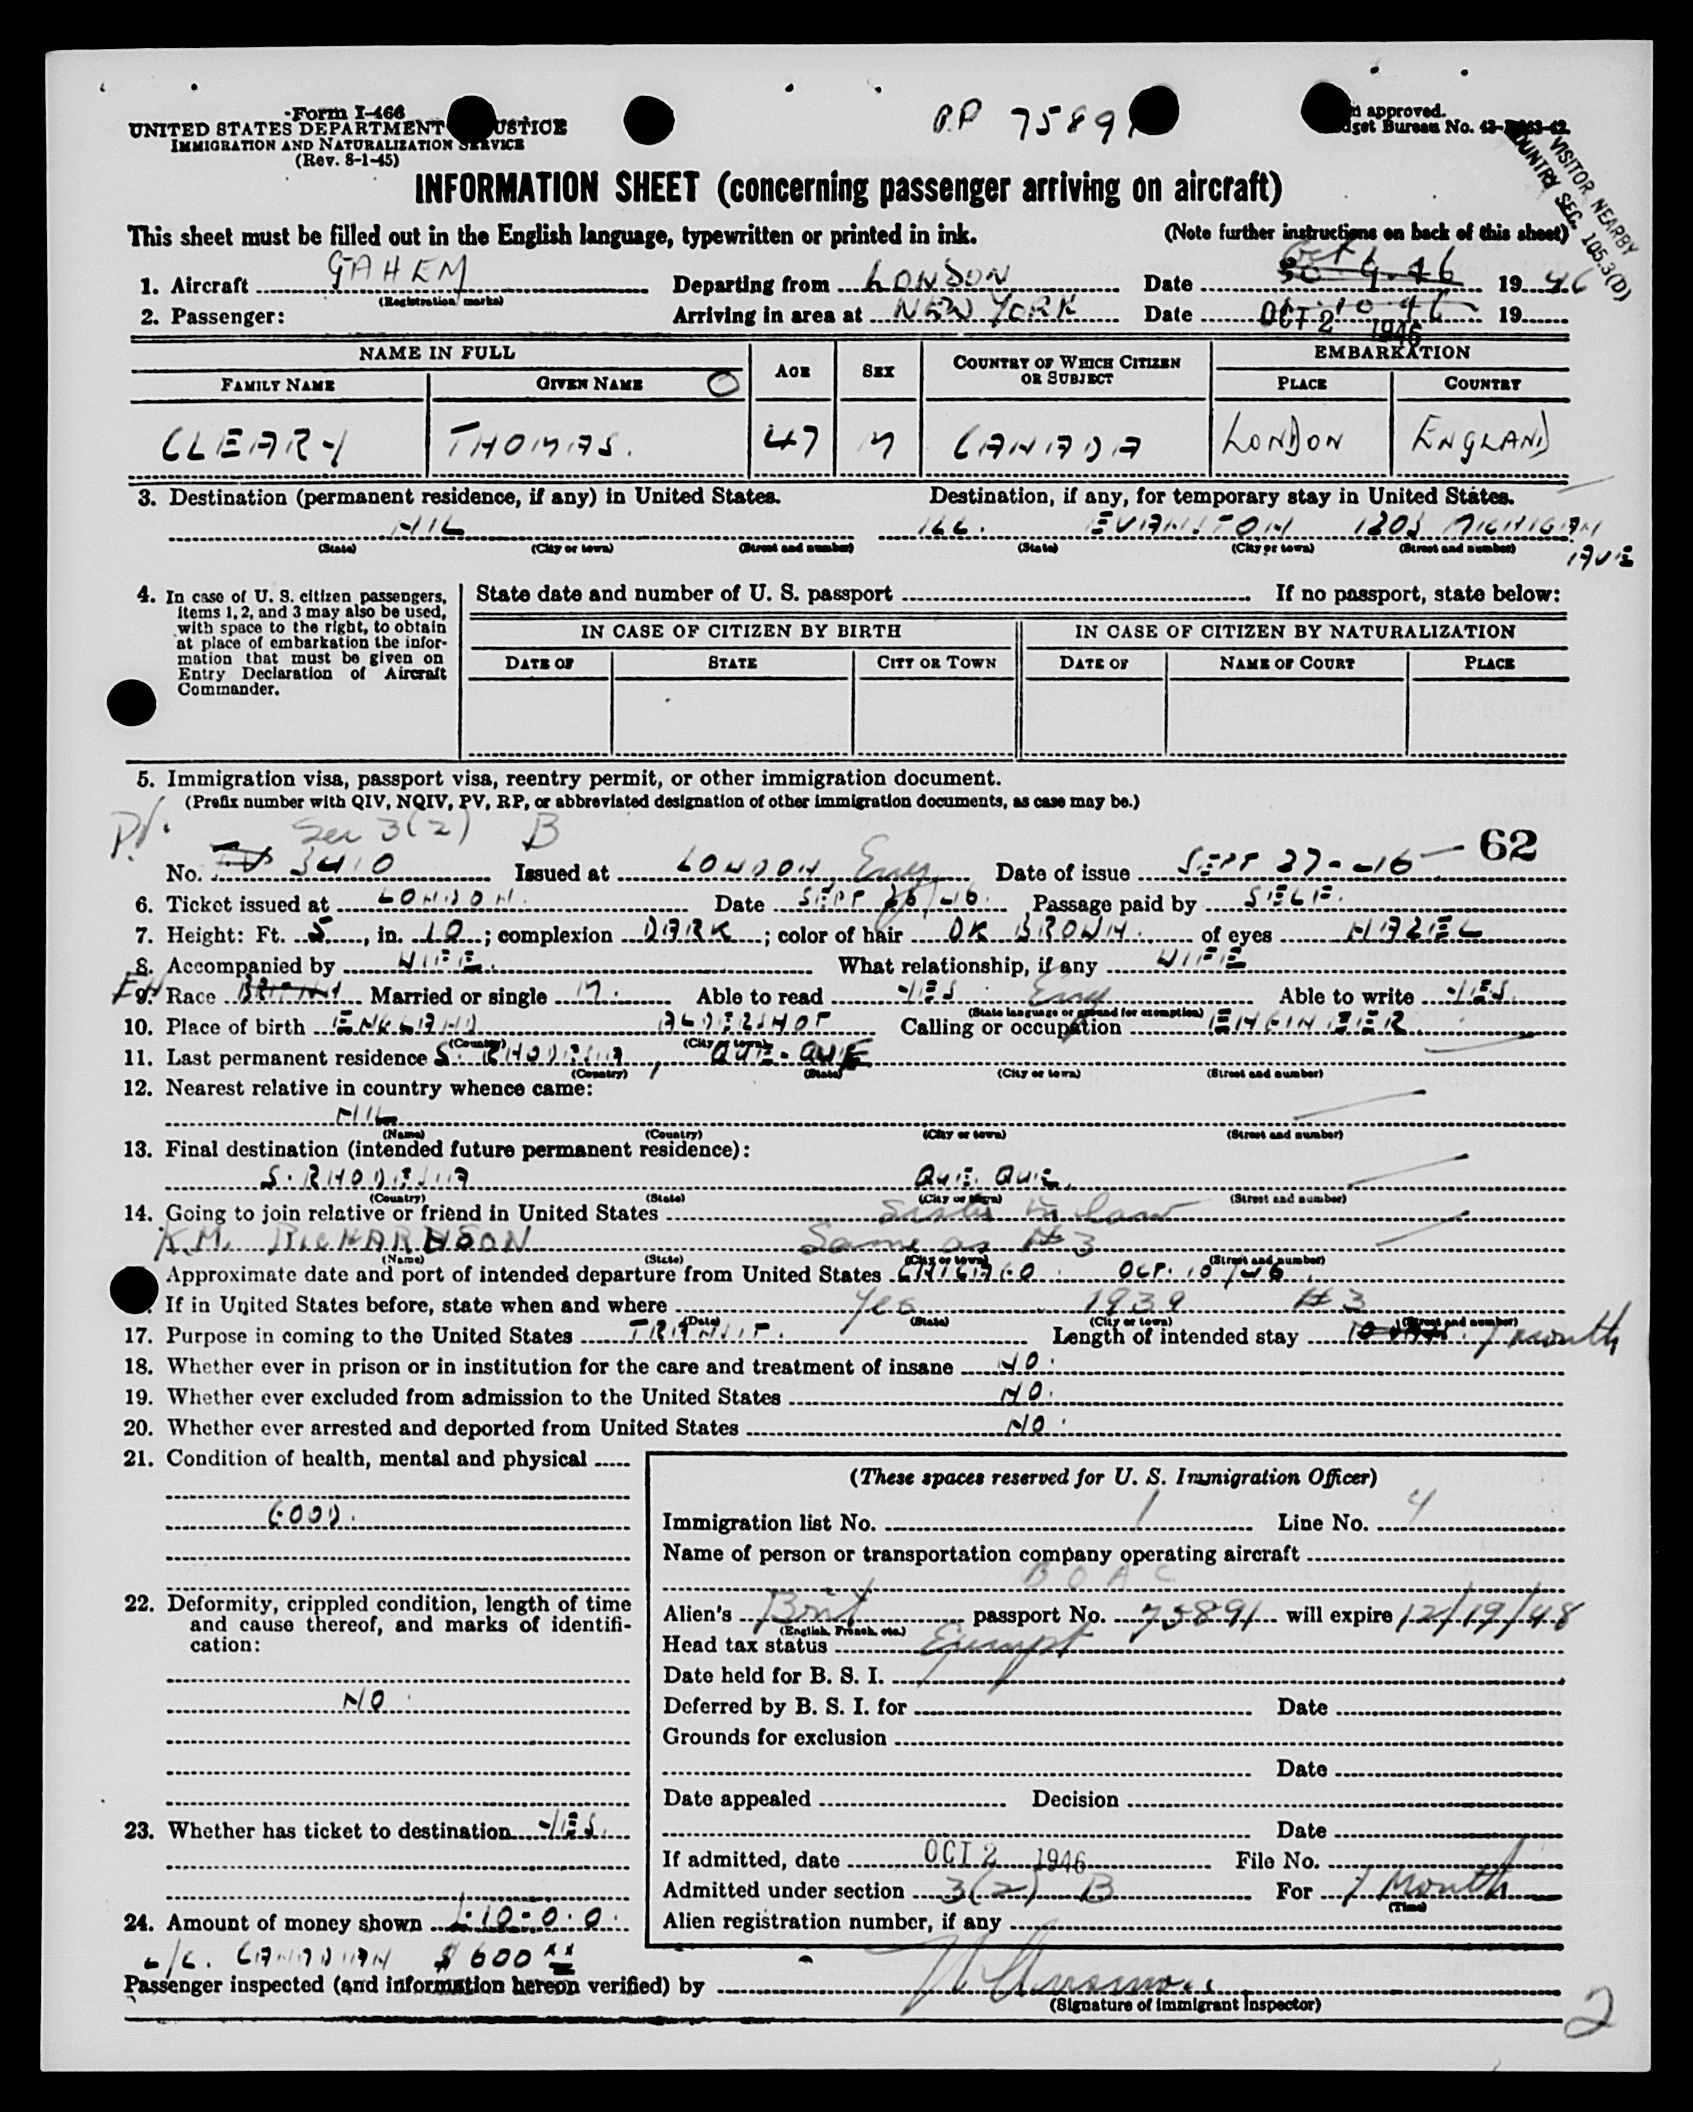 Form I-466
UNITED STATES DEPARTMENT JUSTICE
IMMIGRATION AND NATURALIZATION SERVICE
(Rev. 8-1-45)
PP 7589
approved.
Budget Bureau No. 43-
VISITOR NEARBY
COUNTRY SEC. 105.3(D)
INFORMATION SHEET (concerning passenger arriving on aircraft)
This sheet must be filled out in the English language, typewritten or printed in ink. (Note further instructions on back of this sheet)
1. Aircraft GAHEM Departing from LONDON Date Oct 1 30.9.46 1946
(Registration marks)
2. Passenger: Arriving in area at NEW YORK Date OCT 2 1946 19
NAME IN FULL AGE SEX COUNTRY OF WHICH CITIZEN OR SUBJECT EMBARKATION
FAMILY NAME GIVEN NAME PLACE COUNTRY
CLEARY THOMAS. 47 M CANADA LONDON ENGLAND
3. Destination (permanent residence, if any) in United States. Destination, if any, for temporary stay in United States.
NIL ILL. EVANSTON 1205 MICHIGAN AVE
(State) (City or town) (Street and number) (State) (City or town) (Street and number)
4. In case of U. S. citizen passengers, items 1, 2, and 3 may also be used, with space to the right, to obtain at place of embarkation the information that must be given on Entry Declaration of Aircraft Commander.
State date and number of U. S. passport If no passport, state below:
IN CASE OF CITIZEN BY BIRTH IN CASE OF CITIZEN BY NATURALIZATION
DATE OF STATE CITY OR TOWN DATE OF NAME OF COURT PLACE
5. Immigration visa, passport visa, reentry permit, or other immigration document.
(Prefix number with QIV, NQIV, PV, RP, or abbreviated designation of other immigration documents, as case may be.)
P.V. Sec 3(2) B 62
No. 3410 Issued at LONDON Eng. Date of issue SEPT 27-46
6. Ticket issued at LONDON. Date SEPT 26, 46. Passage paid by SELF.
7. Height: Ft. 5, in. 10; complexion DARK; color of hair DK BROWN. of eyes HAZEL
8. Accompanied by WIFE. What relationship, if any WIFE
9. Race Married or single M. Able to read YES Eng Able to write YES.
(State language or ground for exemption)
10. Place of birth ENGLAND ALDERSHOT Calling or occupation ENGINEER
(Country) (City or town)
11. Last permanent residence S. RHODESIA, QUE-QUE
(Country) (State) (City or town) (Street and number)
12. Nearest relative in country whence came:
NIL
(Name) (Country) (City or town) (Street and number)
13. Final destination (intended future permanent residence):
S. RHODESIA QUE QUE.
(Country) (State) (City or town) (Street and number)
14. Going to join relative or friend in United States Sister in law
K.M. RICHARDSON Same as #3
(Name) (State) (City or town) (Street and number)
Approximate date and port of intended departure from United States CHICAGO. OCT. 10/46.
If in United States before, state when and where Yes 1939 #3
(Date) (State) (City or town) (Street and number)
17. Purpose in coming to the United States TRANSIT. Length of intended stay 1 month
18. Whether ever in prison or in institution for the care and treatment of insane NO.
19. Whether ever excluded from admission to the United States NO.
20. Whether ever arrested and deported from United States NO.
21. Condition of health, mental and physical
GOOD.
22. Deformity, crippled condition, length of time and cause thereof, and marks of identification:
NO.
23. Whether has ticket to destination YES.
24. Amount of money shown £10-0.0.
L/C. CANADIAN $600 xx
(These spaces reserved for U. S. Immigration Officer)
Immigration list No. 1 Line No. 4
Name of person or transportation company operating aircraft
B O A C
Alien's Brit passport No. 75891 will expire 12/19/48
(English, French, etc.)
Head tax status Exempt
Date held for B. S. I.
Deferred by B. S. I. for Date
Grounds for exclusion
Date
Date appealed Decision
Date
If admitted, date OCT 2 1946 File No.
Admitted under section 3(2) B For 1 Month
(Time)
Alien registration number, if any
Passenger inspected (and information hereon verified) by
(Signature of immigrant inspector)
2